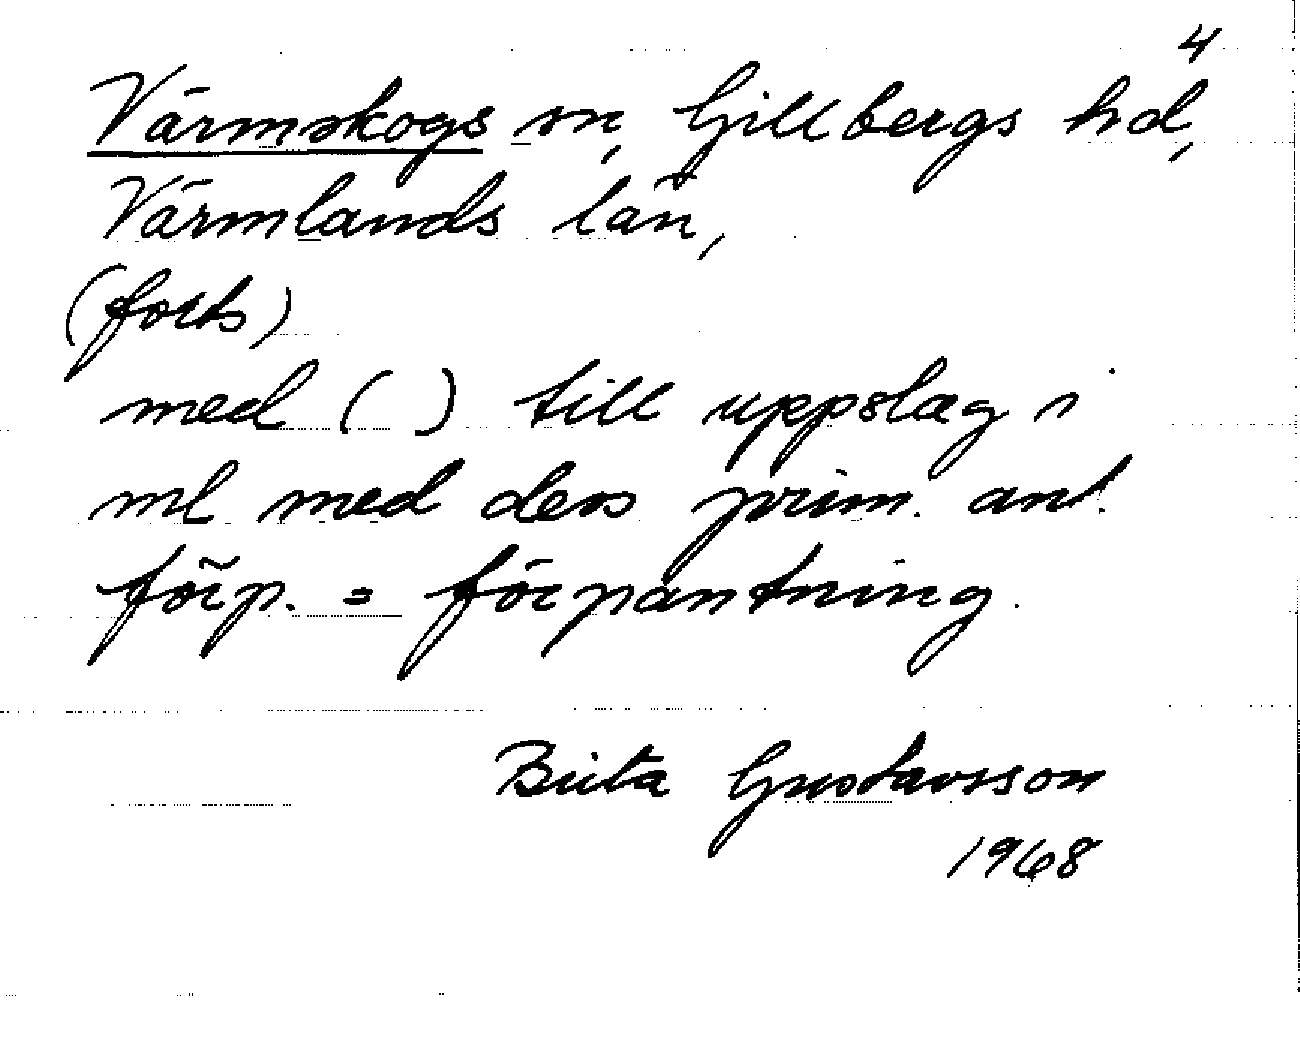 4
Värmskogs sn, Gillbergs hd,
Värmlands län,
(forts)
med ( ) till uppslag i
ml med ders prim. ant.
förp. = förpantning.
Brita Gustavsson
1968